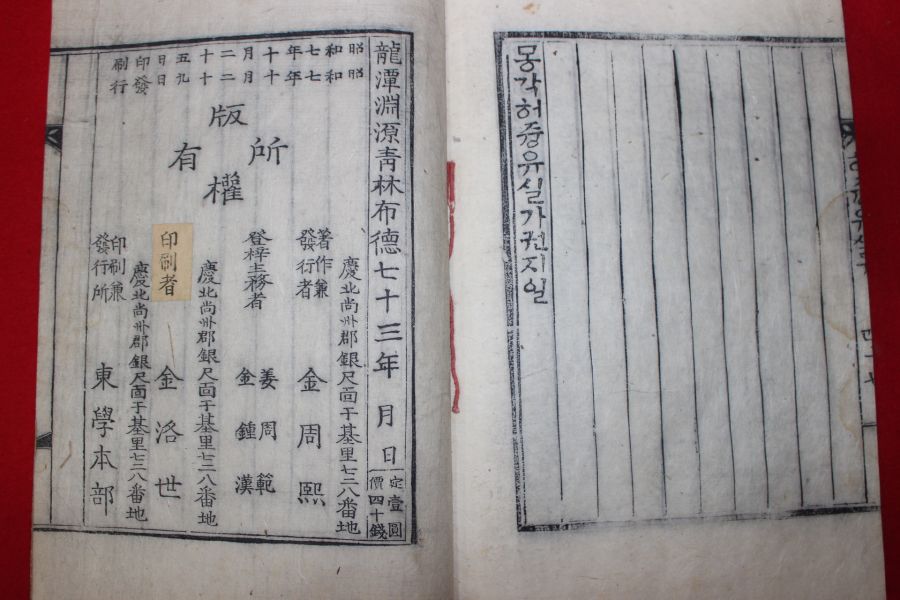 몽각허즁유실가권지일
龍潭淵源青林布德七十三年 月 日 定價壹圓四十錢
昭和七年十月二十五日印刷
昭和七年十月二十九日發行
版權所有
慶北尚州郡銀尺面于基里七三八番地
著作兼發行者 金周熙
登梓主務者 姜周範 金鍾漢
慶北尚州郡銀尺面于基里七三八番地
印刷者 金洛世
慶北尚州郡銀尺面于基里七三八番地
印刷兼發行所 東學本部